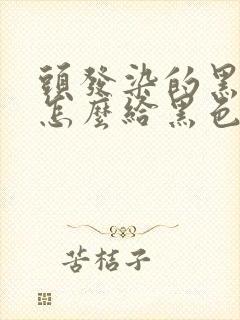 頭發染的黑
怎麼給黑色
苦桔子